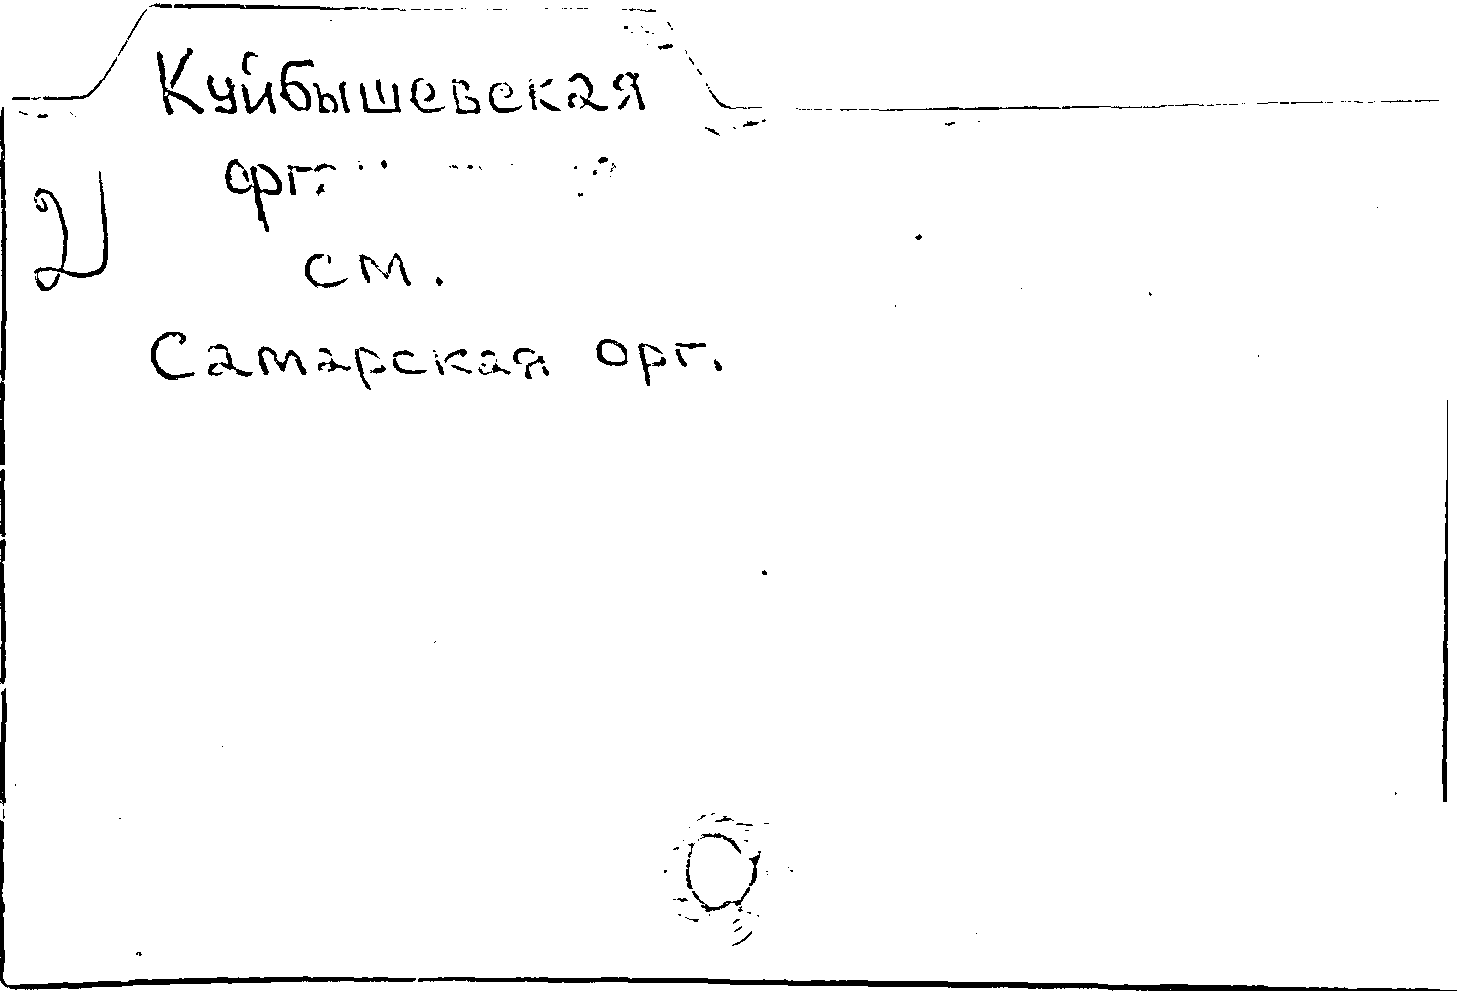 Куйбышевская
орг.
2)
см.
Самарская орг.